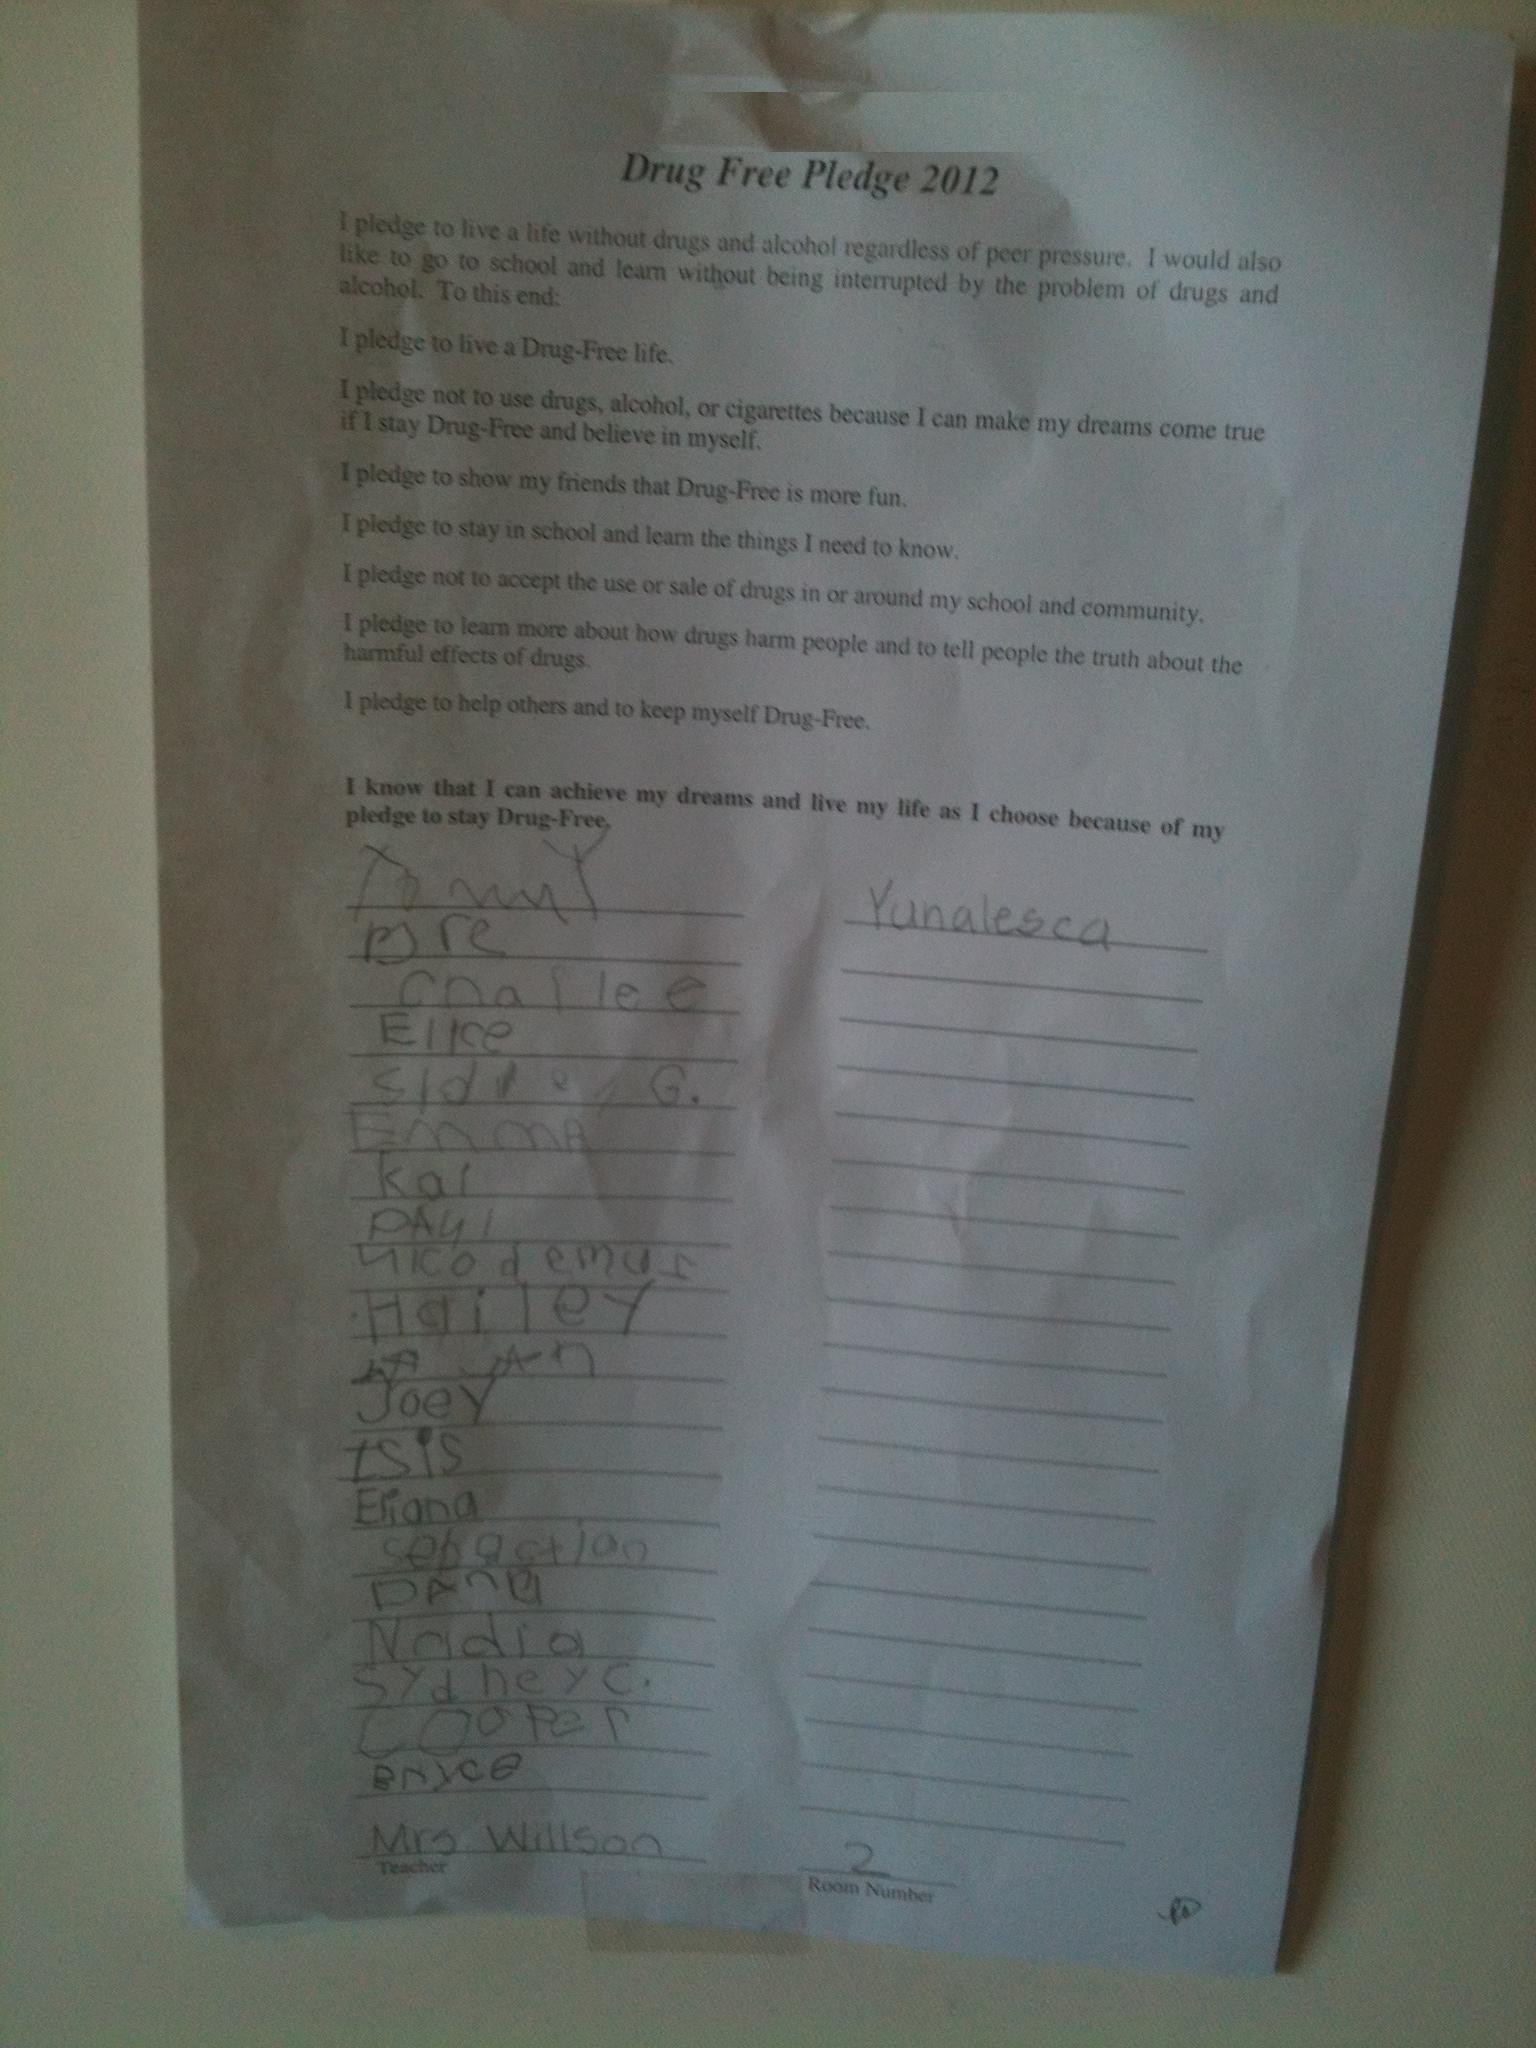 Drug Free Pledge 2012
I pledge to live a life without drugs and alcohol regardless of peer pressure. I would also
like to go to school and learn without being interrupted by the problem of drugs and
alcohol. To this end:
I pledge to live a Drug-Free life.
I pledge not to use drugs, alcohol, or cigarettes because I can make my dreams come true
if I stay Drug-Free and believe in myself.
I pledge to show my friends that Drug-Free is more fun.
I pledge to stay in school and learn the things I need to know.
I pledge not to accept the use or sale of drugs in or around my school and community.
I pledge to learn more about how drugs harm people and to tell people the truth about the
harmful effects of drugs.
I pledge to help others and to keep myself Drug-Free.
I know that I can achieve my dreams and live my life as I choose because of my
pledge to stay Drug-Free.
Yunalesca
G.
EmmA
Kai
Nicodemus
Hailey
Joey
ISiS
Eliana
sebastian
Nadia
Sydney C.
COOPer
Bryce
Mrs. Willson
Teacher
2
Room Number